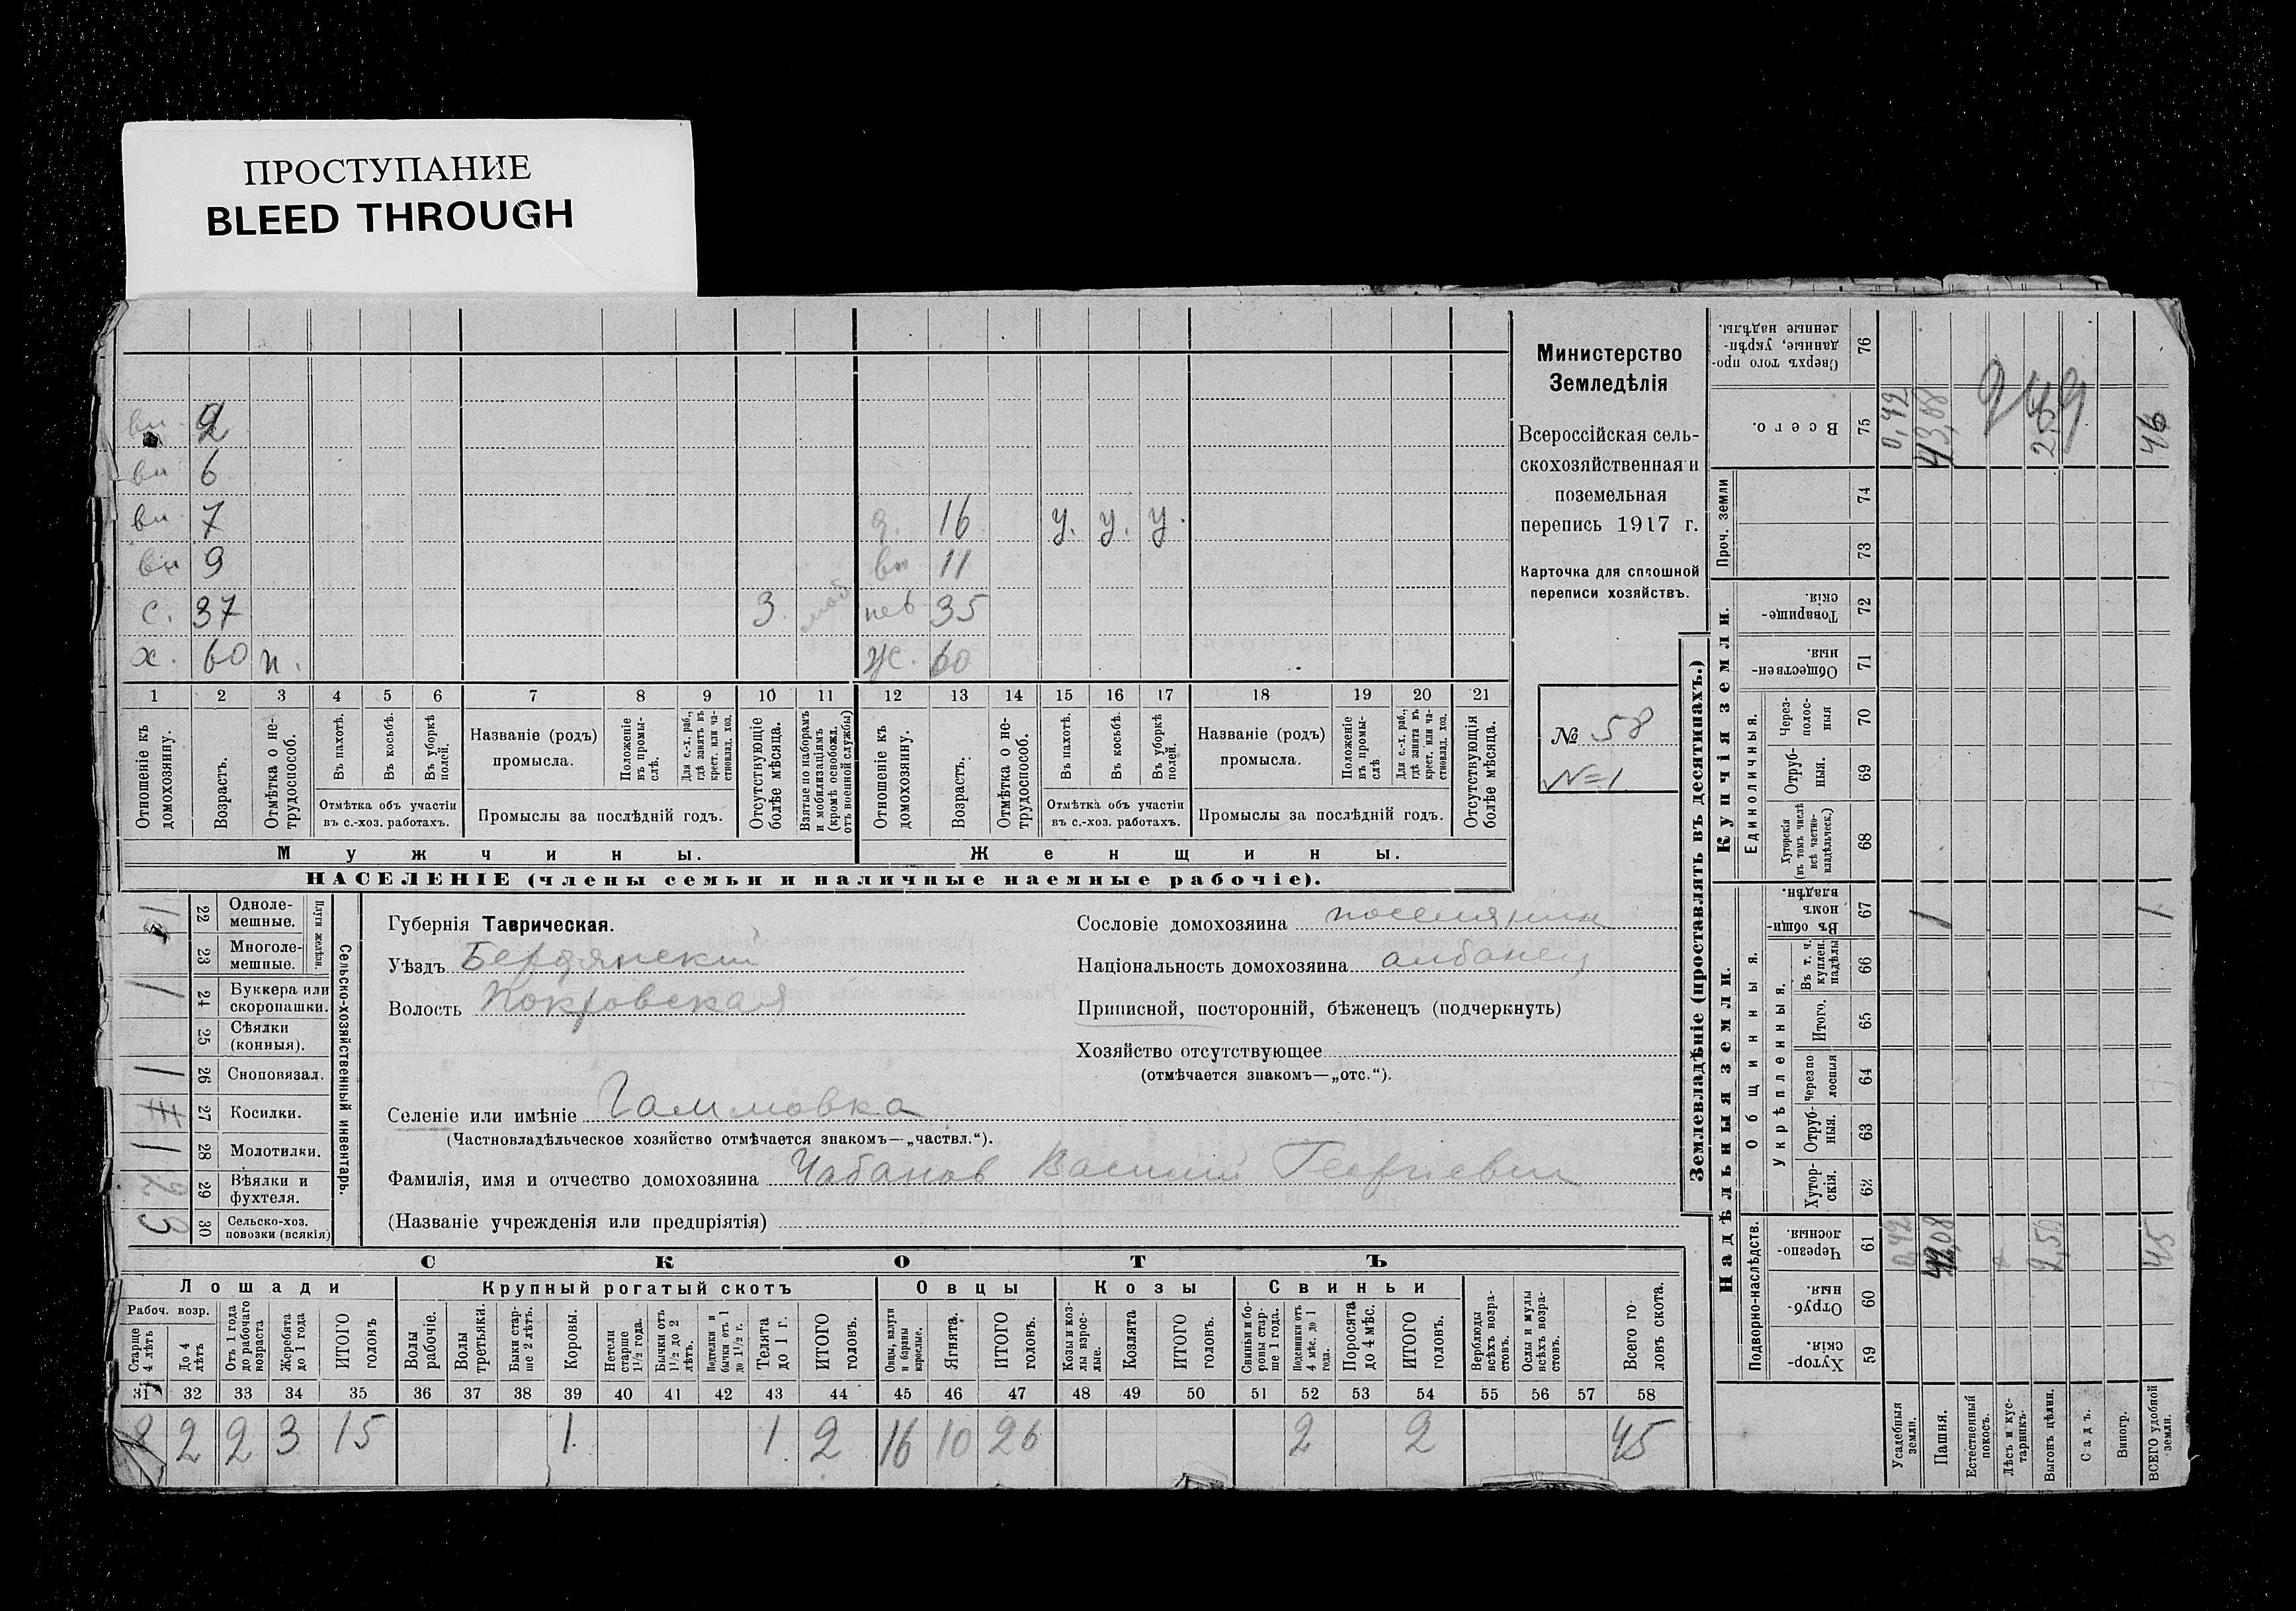 ПРОСТУПАНИЕ
BLEED THROUGH
вн. 2
вн 6
вн. 7
вн 9
с. 37 3. моб
х. 60 н.
д. 16 у. у. у.
вн 11
нев 35
Ж. 60
1 2 3 4 5 6 7 8 9 10 11 12 13 14 15 16 17 18 19 20 21
Отношеніе къ домохозяину.
Возрастъ.
Отмѣтка о нетрудоспособ.
Въ пахотѣ.
Въ косьбѣ.
Въ уборкѣ полей.
Отмѣтка объ участіи въ с.-хоз. работахъ.
Названіе (родъ) промысла.
Положеніе въ промыслѣ.
Для с.-х. раб., гдѣ занятъ въ крест. или частновлад. хоз.
Промыслы за послѣдній годъ.
Отсутствующіе болѣе мѣсяца.
Взятые по наборамъ и мобилизаціямъ (кромѣ освобожд. отъ военной службы)
Отношеніе къ домохозяину.
Возрастъ.
Отмѣтка о нетрудоспособ.
Въ пахотѣ.
Въ косьбѣ.
Въ уборкѣ полей.
Отмѣтка объ участіи въ с.-хоз. работахъ.
Названіе (родъ) промысла.
Положеніе въ промыслѣ
Для с.-х. раб., гдѣ занята въ крест. или частновлад. хоз.
Промыслы за послѣдній годъ.
Отсутствующія болѣе мѣсяца.
Мужчины.
Женщины.
НАСЕЛЕНІЕ (члены семьи и наличные наемные рабочіе).
Министерство
Земледѣлія
Всероссійская сель-
скохозяйственная и
поземельная
перепись 1917 г.
Карточка для сплошной
переписи хозяйствъ.
№ 58
N=1
Сельско-хозяйственный инвентарь.
Плуги желѣзн.
22 Одноле-мешные. 1
23 Многоле-мешные.
24 Буккера или скоропашки. 1
25 Сѣялки (конныя).
26 Сноповязал. 1
27 Косилки.
28 Молотилки. 1
29 Вѣялки и фухтеля. 2
30 Сельско-хоз. повозки (всякія) 3
Губернія Таврическая.
Уѣздъ Бердянский
Волость Покровская
Сословіе домохозяина поселянин
Національность домохозяина албанец
Приписной, посторонній, бѣженецъ (подчеркнуть)
Хозяйство отсутствующее
(отмѣчается знакомъ—„отс.“).
Селеніе или имѣніе Гаммовка
(Частновладѣльческое хозяйство отмѣчается знакомъ—„частвл.“).
Фамилія, имя и отчество домохозяина Чабанов Василий Георгиевич
(Названіе учрежденія или предпріятія)
СКОТЪ
Лошади Крупный рогатый скотъ Овцы Козы Свиньи
Рабоч. возр.
Старше 4 лѣтъ
До 4 лѣтъ
Отъ 1 года до рабочаго возраста
Жеребята до 1 года
ИТОГО головъ
Волы рабочіе.
Волы третьяки.
Быки старше 2 лѣтъ.
Коровы.
Нетели старше 1½ года.
Бычки отъ 1½ до 2 лѣтъ.
Подтелки и бычки отъ 1 до 1½ г.
Телята до 1 г.
ИТОГО головъ.
Овцы, валухи и бараны взрослые.
Ягнята.
ИТОГО головъ.
Козы и козлы взрослые.
Козлята
ИТОГО головъ.
Свиньи и боровы старше 1 года.
Подсвинки отъ 4 мѣс. до 1 года.
Поросята до 4 мѣс.
ИТОГО головъ.
Верблюды всѣхъ возрастовъ.
Ослы и мулы всѣхъ возрастовъ.
Всего головъ скота.
31 32 33 34 35 36 37 38 39 40 41 42 43 44 45 46 47 48 49 50 51 52 53 54 55 56 57 58
8 2 2 3 15 1. 1 2 16 10 26 2 2 45
Землевладѣніе (проставлять въ десятинахъ.)
Надѣльныя земли.
Купчія земли.
Проч. земли
Подворно-наслѣдств.
Общинныя.
Укрѣпленныя.
Единоличныя.
59 Хутор-скія.
60 Отруб-ныя.
61 Черезпо-лосныя.
62 Хутор-скія.
63 Отруб-ныя.
64 черезпо лосныя
65 Итого.
66 Въ т. ч. куплен. надѣлы
67 Въ общи-номъ владѣн.
68 Хуторскія (въ томъ числѣ всѣ частно-владѣльческ.)
69 Отруб-ныя.
70 Через-полос-ныя
71 Обществен-ныя.
72 Товарище-скія.
73
74
75 Всего.
76 Сверхъ того про-данные, укрѣп-ленные надѣлы.
Усадебныя земли. 0,42 0,42
Пашня. 42,08 1 43,08
Естественный покосъ.
Лѣсъ и кус-тарникъ.
Выгонъ цѣлин. 2,50 2,5
Садъ.
Виногр.
ВСЕГО удобной земли. 45 1 46
249